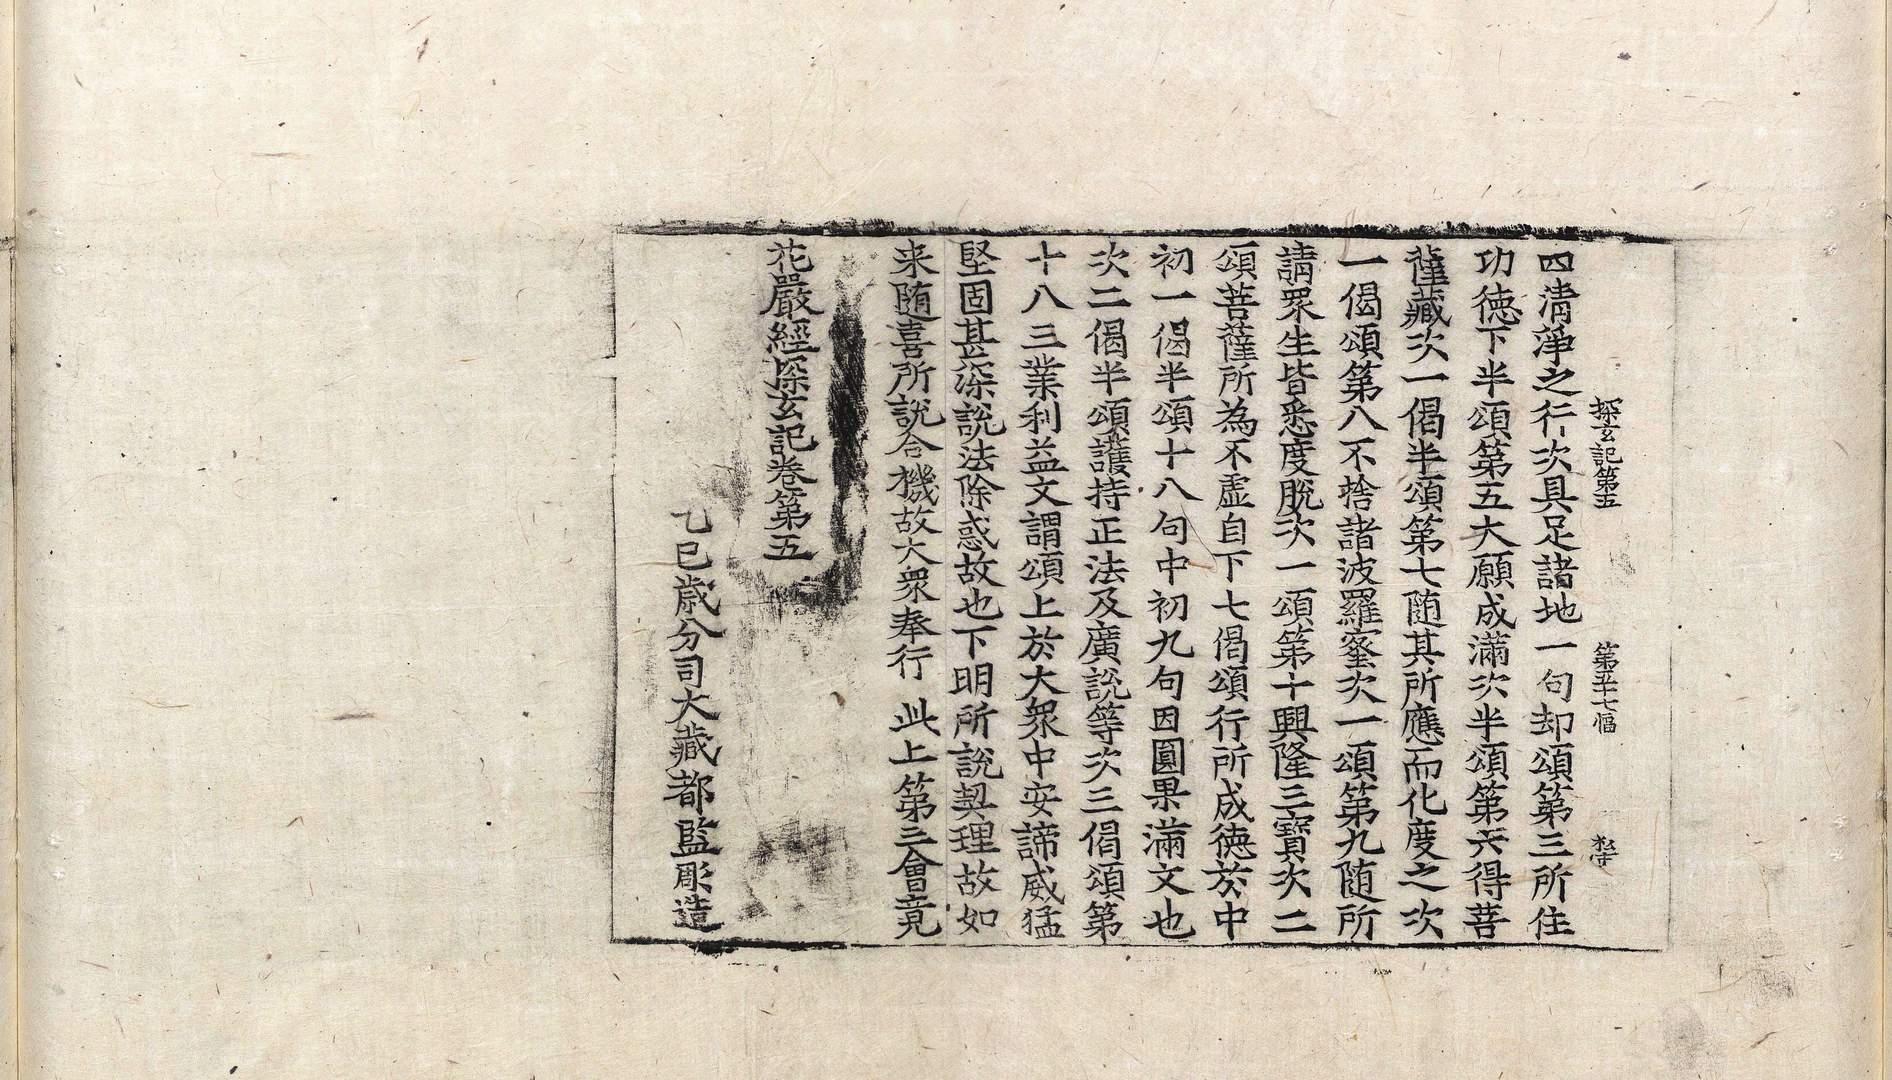 探玄記第五 第五十七幅 㳂
四清淨之行次具足諸地一句却頌第三所住
功德下半頌第五大願成滿次半頌第六得菩
薩藏次一偈半頌第七随其所應而化度之次
一偈頌第八不捨諸波羅蜜次一頌第九随所
請眾生皆悉度脫次一頌第十興隆三寶次二
頌菩薩所為不虛自下七偈頌行所成德於中
初一偈半頌十八句中初九句因圓果滿文也
次二偈半頌護持正法及廣說等次三偈頌第
十八三業利益文謂頌上於大眾中安諦威猛
堅固甚深說法除惑故也下明所說契理故如
来随喜所說合機故大眾奉行 此上第三會竟
花嚴經探玄記卷第五
乙巳歳分司大藏都監彫造